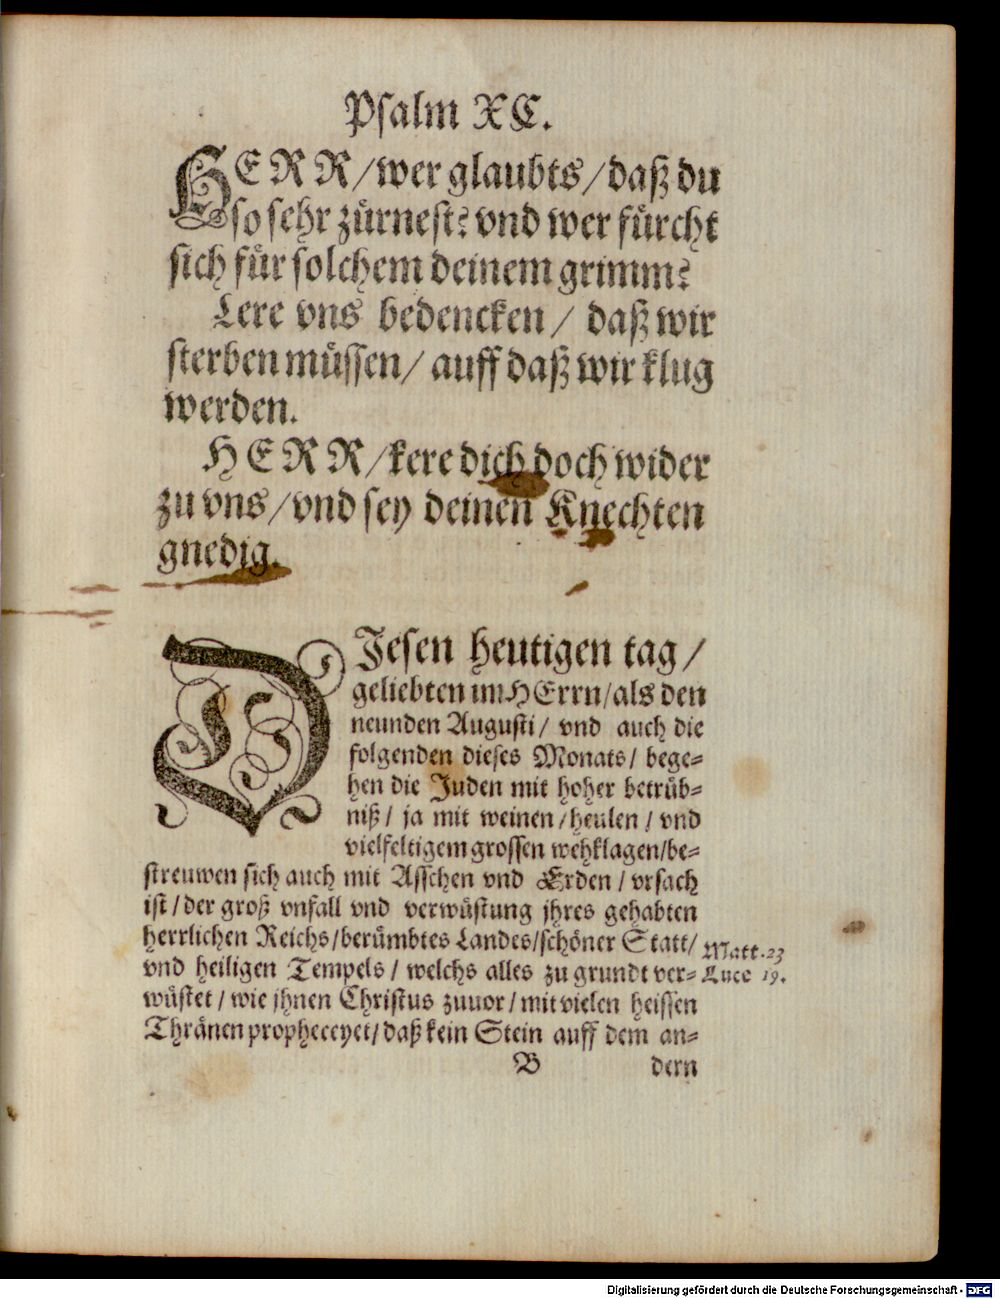 Psalm XC.
HERR/wer glaubts/daß du
so sehr zürnest? vnd wer fürcht
sich für solchem deinem grimm?
Lere vns bedencken/ daß wir
sterben müssen/ auff daß wir klug
werden.
HERR/kere dich doch wider
zu vns/vnd sey deinen Knechten
gnedig.
DIesen heutigen tag/
geliebten im HErrn/als den
neunden Augusti/ vnd auch die
folgenden dieses Monats/ bege=
hen die Juden mit hoher betrüb=
niß/ ja mit weinen/heulen/ vnd
vielfeltigem grossen wehklagen/be=
streuwen sich auch mit Asschen vnd Erden/ vrsach
ist/der groß vnfall vnd verwüstung jhres gehabten
herrlichen Reichs/berümbtes Landes/schöner Statt/
vnd heiligen Tempels/ welchs alles zu grundt ver=
wüstet/wie jhnen Christus zuuor/mit vielen heissen
Thränen propheceyet/daß kein Stein auff dem an=
Matt.23
Luce 19.
B dern
Digitalisierung gefördert durch die Deutsche Forschungsgemeinschaft - DFG